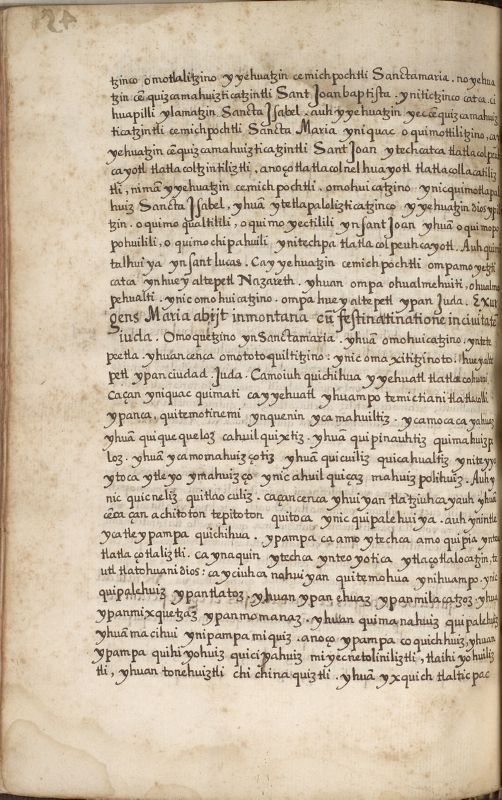 tzinco omotlalitzino yyehuatzin cemichpochtli Sanctamaria. noyehua
tzin cēquizcamahuizticatzintli Sant Joan baptista. ynitictzinco catca. ci
huapilli ylamatzin Sancta Jsabel. auh yyehuatzin yecēquizcamahuiz
ticatzintli cemichpochtli Sancta Maria yniquac oquimottilitzino, ca y
yehuatzin cēquizcamahuizticatzintli Sant Joan ytechcatca tlatlacolpeuh
cayotl tlatlacoltzintiliztli, anoço tlatlacolnelhuayotl tlatlacollacatiliz
tli, nimā yyehuatzin cemichpochtli. omohuicatzino ynicquimotlapal
huiz Sancta Jsabel, yhuā ytetlapaloliz ticatzinco yyehuatzin dios ypil
tzin. oquimoqualtilili, oquimoyectilili ynsant Joan yhuā oquimopo
pohuilili, oquimochipahuili ynitechpa tlatlacolpeuhcayotl. Auh quim
talhuiya ynsant lucas. Cayyehuatzin cemichpochtli ompamoyetzti
catca ynhuey altepetl Nazareth. yhuan ompa ohualmehuiti, ohualmo
pehualti. ynic omohuicatzino. ompa huey altepetl ypan Juda. Exur
gens Maria abijt inmontana cū festinatinatione incivitatē
iuda. Omoquetzino ynSanctamaria. yhuā omohuicatzino, yntete
peetla. yhuan cenca omototoquiltitzino: ynic omaxititzinoto: hueyalte
petl ypan ciudad Juda. Camoiuh quichihua yyehuatl tlatlacohuani,
Caçan yniquac quimati cayyehuatl yhuampo temictiani tlatlaculli
ypanca, quitemotinemi ynquenin ycamahuiltiz. ycamocacayahuaz
yhuā quiquequeloz cahuilquixtiz. yhuā quipinauhtiz quimahuizpo
loz. yhuā ycamomahuizçotiz yhuā quicuiliz quicahualtiz yniteyyo
ytoca ytleyo ymahuizço ynic ahuilquiçaz mahuizpolihuiz. Auh y
nic quicneliz quitlaoculiz. caçancenca yhuiyan tlatziuhcayauh yhuā
cēca çan achitoton tepitoton quitoca ynic quipalehuiya. auh ynintle
ycatle ypampa quichihua. ypampa ca amo ytechca amo quipia ynteo
tlatlaçotlaliztli. ca ynaquin ytechca ynteoyotica ytlaçotlalocatzin, to
utl tlatohuani dios: cayciuhca nohuiyan quitemohua ynihuampo. ynic
quipalehuiz ypantlatoz. yhuan ypan ehuaz ypanmilacatzoz. yhuā
ypanmixquetzaz ypanmomanaz. yhuan quimanahuiz quipalehuiz
yhuā macihui ynipampa miquiz. anoço ypampa cocoquichhuiz, yhuan
ypampa quihiyohuiz quiciyahuiz miyecnetoliniliztli, tlaihiyohuiliz
tli, yhuan tonehuiztli chichinaquiztli. yhuā yxquich tlalticpac